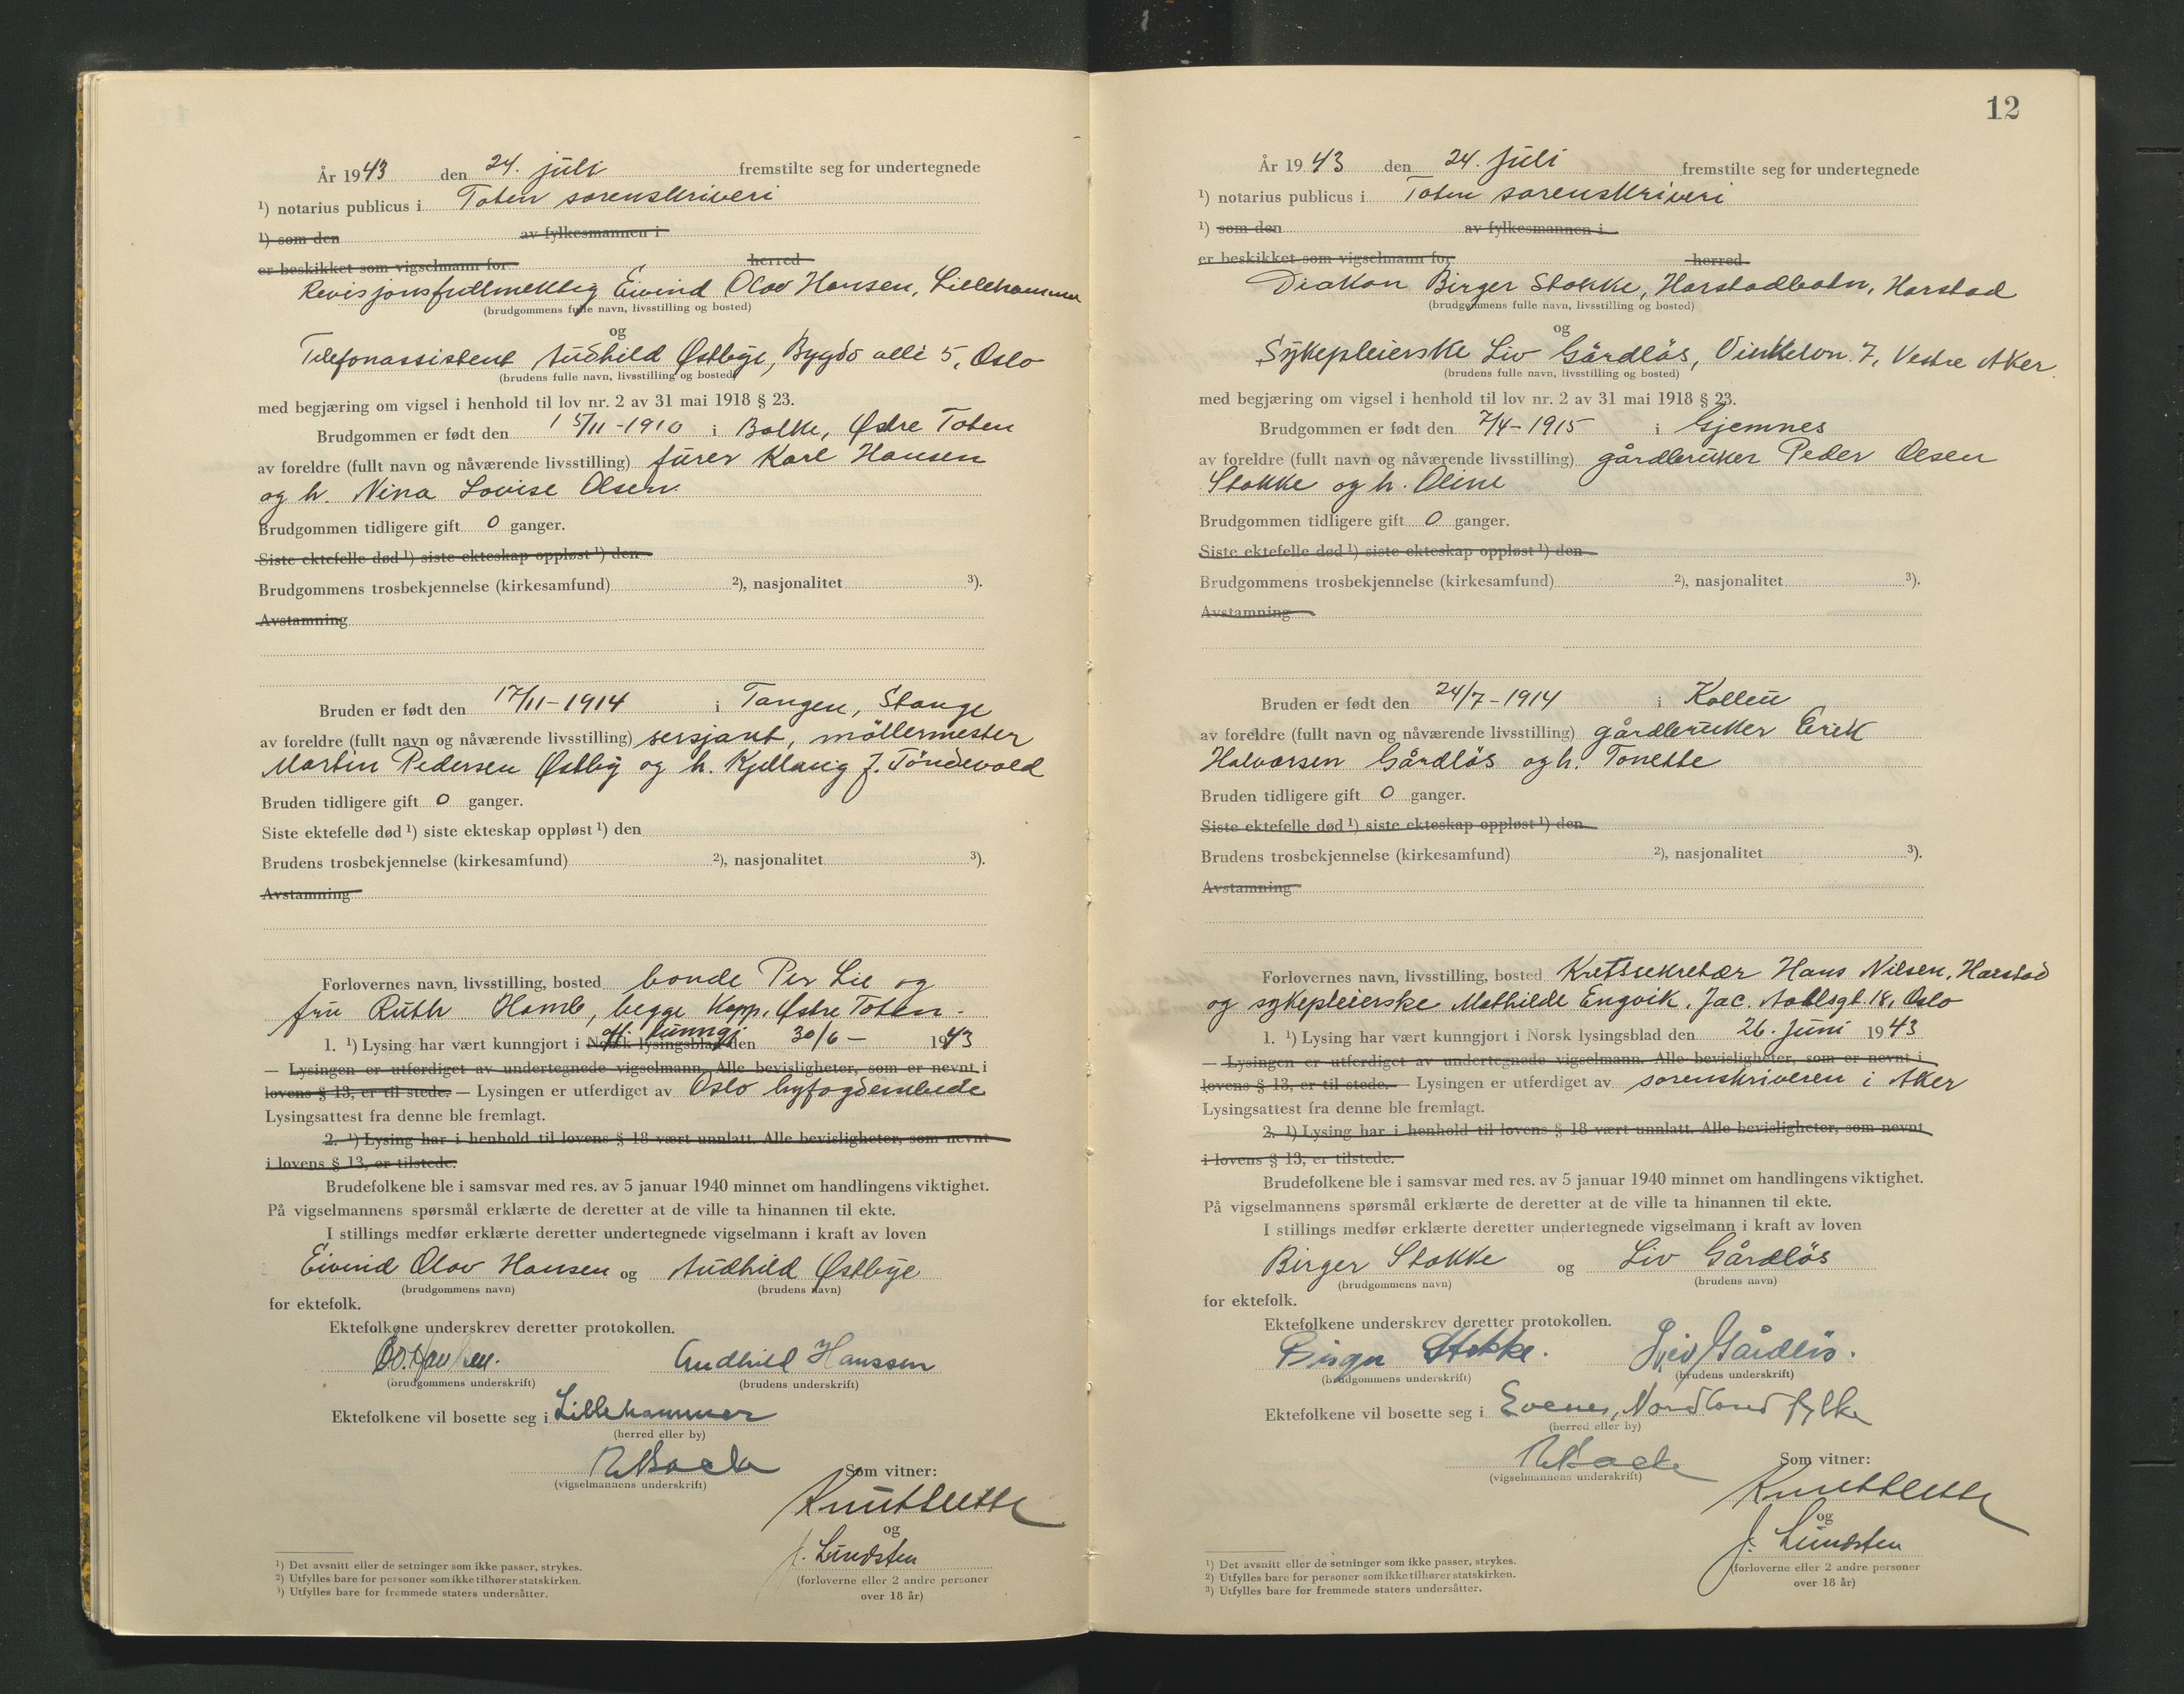 År 1943 den 24. juli fremstilte seg for undertegnede
¹) notarius publicus i Toten sorenskriveri
¹) som den av fylkesmannen i
er beskikket som vigselmann for herred
Revisjonsfullmektig Eivind Olav Hansen, Lillehammer
(brudgommens fulle navn, livsstilling og bosted)
og
Telefonassistent Audhild Østbye, Bygdö allé 5, Oslo
(brudens fulle navn, livsstilling og bosted)
med begjæring om vigsel i henhold til lov nr. 2 av 31 mai 1918 § 23.
Brudgommen er født den 15/11-1910 i Balke, Østre Toten
av foreldre (fullt navn og nåværende livsstilling) furer Karl Hansen
og h. Nina Lovise Olsen.
Brudgommen tidligere gift 0 ganger.
Siste ektefelle død ¹) siste ekteskap oppløst ¹) den
Brudgommens trosbekjennelse (kirkesamfund) ²), nasjonalitet ³).
Avstamning
Bruden er født den 17/11-1914 i Tangen, Stange
av foreldre (fullt navn og nåværende livsstilling) sersjant, möllermester
Martin Pedersen Østby og h. Kjellaug J. Töndevold
Bruden tidligere gift 0 ganger.
Siste ektefelle død ¹) siste ekteskap oppløst ¹) den
Brudens trosbekjennelse (kirkesamfund) ²), nasjonalitet ³).
Avstamning
Forlovernes navn, livsstilling, bosted bonde Per Lie og
fru Ruth Homb, begge Kapp, Østre Toten.
off. kunngj.
1. ¹) Lysing har vært kunngjort i Norsk lysingsblad den 30/6- 1943
— Lysingen er utferdiget av undertegnede vigselmann. Alle bevisligheter, som er nevnt i
lovens § 13, er til stede. — Lysingen er utferdiget av Oslo byfogdembede
Lysingsattest fra denne ble fremlagt.
2. ¹) Lysing har i henhold til lovens § 18 vært unnlatt. Alle bevisligheter, som nevnt
i lovens § 13, er tilstede.
Brudefolkene ble i samsvar med res. av 5 januar 1940 minnet om handlingens viktighet.
På vigselmannens spørsmål erklærte de deretter at de ville ta hinannen til ekte.
I stillings medfør erklærte deretter undertegnede vigselmann i kraft av loven
Eivind Olav Hansen og Audhild Østbye
(brudgommens navn) (brudens navn)
for ektefolk.
Ektefolkene underskrev deretter protokollen.
Audhild Hanssen
(brudgommens underskrift) (brudens underskrift)
Ektefolkene vil bosette seg i Lillehammer
(herred eller by)
Som vitner:
(vigselmannens underskrift)
og
J. Lundsten
(forloverne eller 2 andre personer
over 18 år)
¹) Det avsnitt eller de setninger som ikke passer, strykes.
²) Utfylles bare for personer som ikke tilhører statskirken.
³) Utfylles bare for fremmede staters undersåtter.
12
År 1943 den 24. juli fremstilte seg for undertegnede
¹) notarius publicus i Toten sorenskriveri
¹) som den av fylkesmannen i
er beskikket som vigselmann for herred
Diakon Birger Stokke, Harstadbotn, Harstad
(brudgommens fulle navn, livsstilling og bosted)
og
Sykepleierske Liv Gårdlös, Vinkelvn. 7, Vestre Aker.
(brudens fulle navn, livsstilling og bosted)
med begjæring om vigsel i henhold til lov nr. 2 av 31 mai 1918 § 23.
Brudgommen er født den 7/4-1915 i Gjemnes
av foreldre (fullt navn og nåværende livsstilling) gårdbruker Peder Olsen
Stokke og h. Oline
Brudgommen tidligere gift 0 ganger.
Siste ektefelle død ¹) siste ekteskap oppløst ¹) den
Brudgommens trosbekjennelse (kirkesamfund) ²), nasjonalitet ³).
Avstamning
Bruden er født den 24/7-1914 i Kolbu
av foreldre (fullt navn og nåværende livsstilling) gårdbruker Erik
Halvorsen Gårdlös og h. Tonette
Bruden tidligere gift 0 ganger.
Siste ektefelle død ¹) siste ekteskap oppløst ¹) den
Brudens trosbekjennelse (kirkesamfund) ²), nasjonalitet ³).
Avstamning
Forlovernes navn, livsstilling, bosted Kretssekretær Hans Nilsen, Harstad
og sykepleierske Mathilde Engvik, Jac. Aallsgt. 18, Oslo
1. ¹) Lysing har vært kunngjort i Norsk lysingsblad den 26. juni 1943
— Lysingen er utferdiget av undertegnede vigselmann. Alle bevisligheter, som er nevnt i
lovens § 13, er til stede. — Lysingen er utferdiget av sorenskriveren i Aker
Lysingsattest fra denne ble fremlagt.
2. ¹) Lysing har i henhold til lovens § 18 vært unnlatt. Alle bevisligheter, som nevnt
i lovens § 13, er tilstede.
Brudefolkene ble i samsvar med res. av 5 januar 1940 minnet om handlingens viktighet.
På vigselmannens spørsmål erklærte de deretter at de ville ta hinannen til ekte.
I stillings medfør erklærte deretter undertegnede vigselmann i kraft av loven
Birger Stokke og Liv Gårdlös
(brudgommens navn) (brudens navn)
for ektefolk.
Ektefolkene underskrev deretter protokollen.
Birger Stokke. Liv Gårdlös.
(brudgommens underskrift) (brudens underskrift)
Ektefolkene vil bosette seg i Evenes, Nordland fylke
(herred eller by)
Som vitner:
(vigselmannens underskrift)
og
J. Lundsten
(forloverne eller 2 andre personer
over 18 år)
¹) Det avsnitt eller de setninger som ikke passer, strykes.
²) Utfylles bare for personer som ikke tilhører statskirken.
³) Utfylles bare for fremmede staters undersåtter.